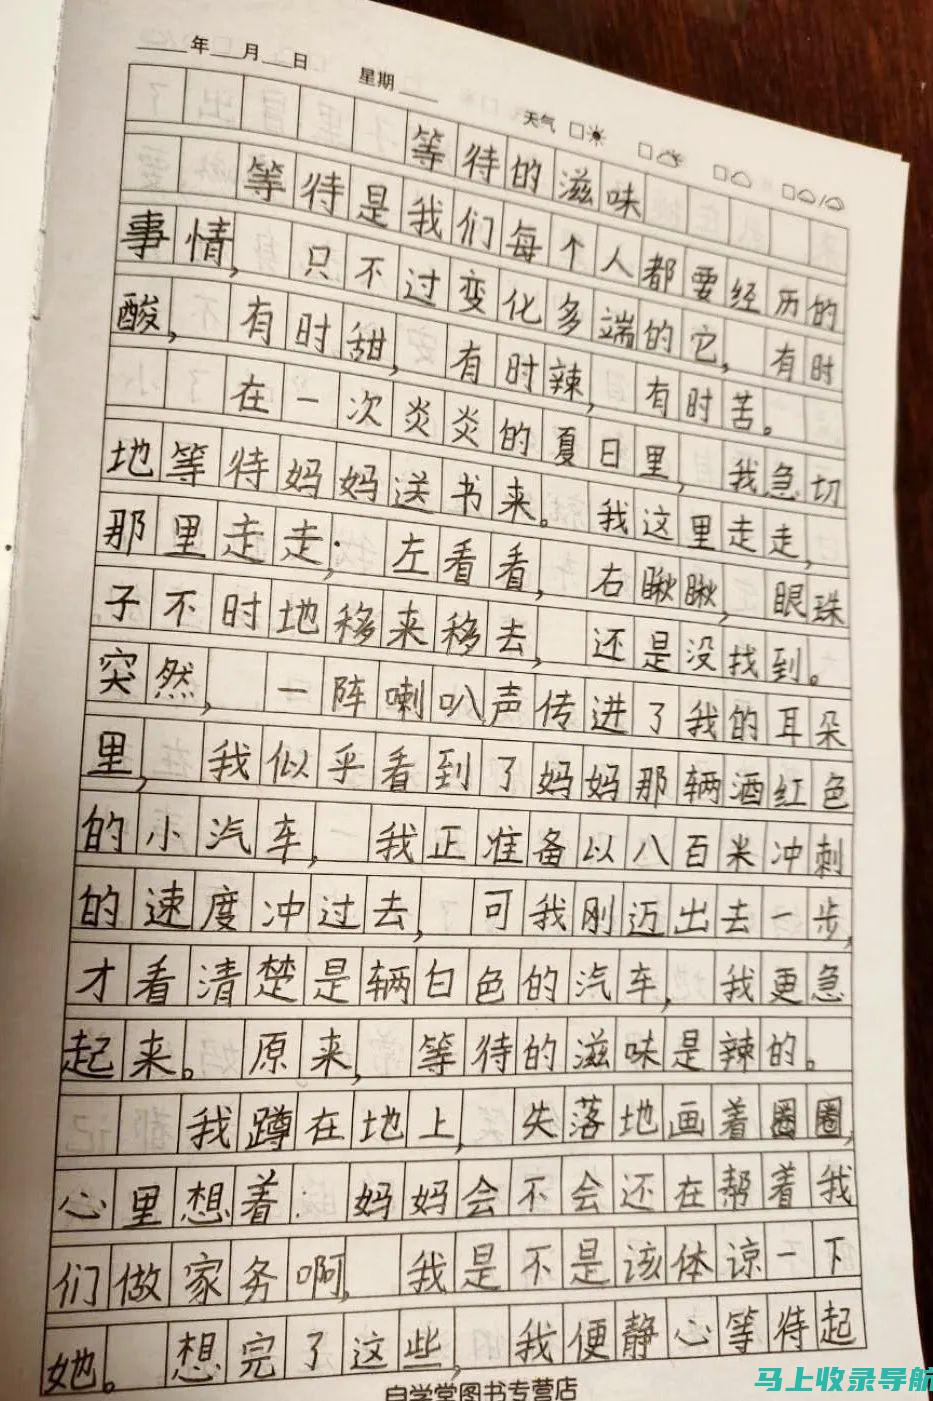 年 月 日 星期 天气
等待的滋味
等待是我们每个人都要经历的
事情，只不过变化多端的它，有时
酸，有时甜，有时辣，有时苦。
在一次炎炎的夏日里，我急切
地等待妈妈送书来。我这里走走，
那里走走；左看看，右瞅瞅，眼珠
子不时地移来移去，还是没找到。
突然，一阵喇叭声传进了我的耳朵
里，我似乎看到了妈妈那辆酒红色
的小汽车，我正准备以八百米冲刺
的速度冲过去，可我刚迈出去一步，
才看清楚是辆白色的汽车，我更急
起来。原来，等待的滋味是辣的。
我蹲在地上，失落地画着圈圈，
心里想着：妈妈会不会还在帮着我
们做家务啊，我是不是该体谅一下
她。想完了这些，我便静心等待起
自学堂图书专营店
马上收录导航